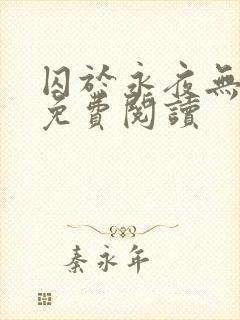 囚於永夜無
免費閱讀
秦永年